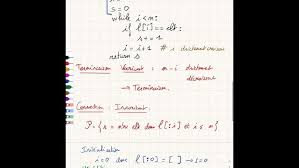 s = 0
while i < n:
if l[i] == elt:
s += 1
i = i + 1 # i strictement croissant
return s
Terminaison Variant : n - i strictement
décroissant
→ Terminaison.
Correction : Invariant
P = { s = nbr elt dans l[:i] et i ≤ n }
Initialisation
i = 0 dans l[:0] = [ ] → s = 0